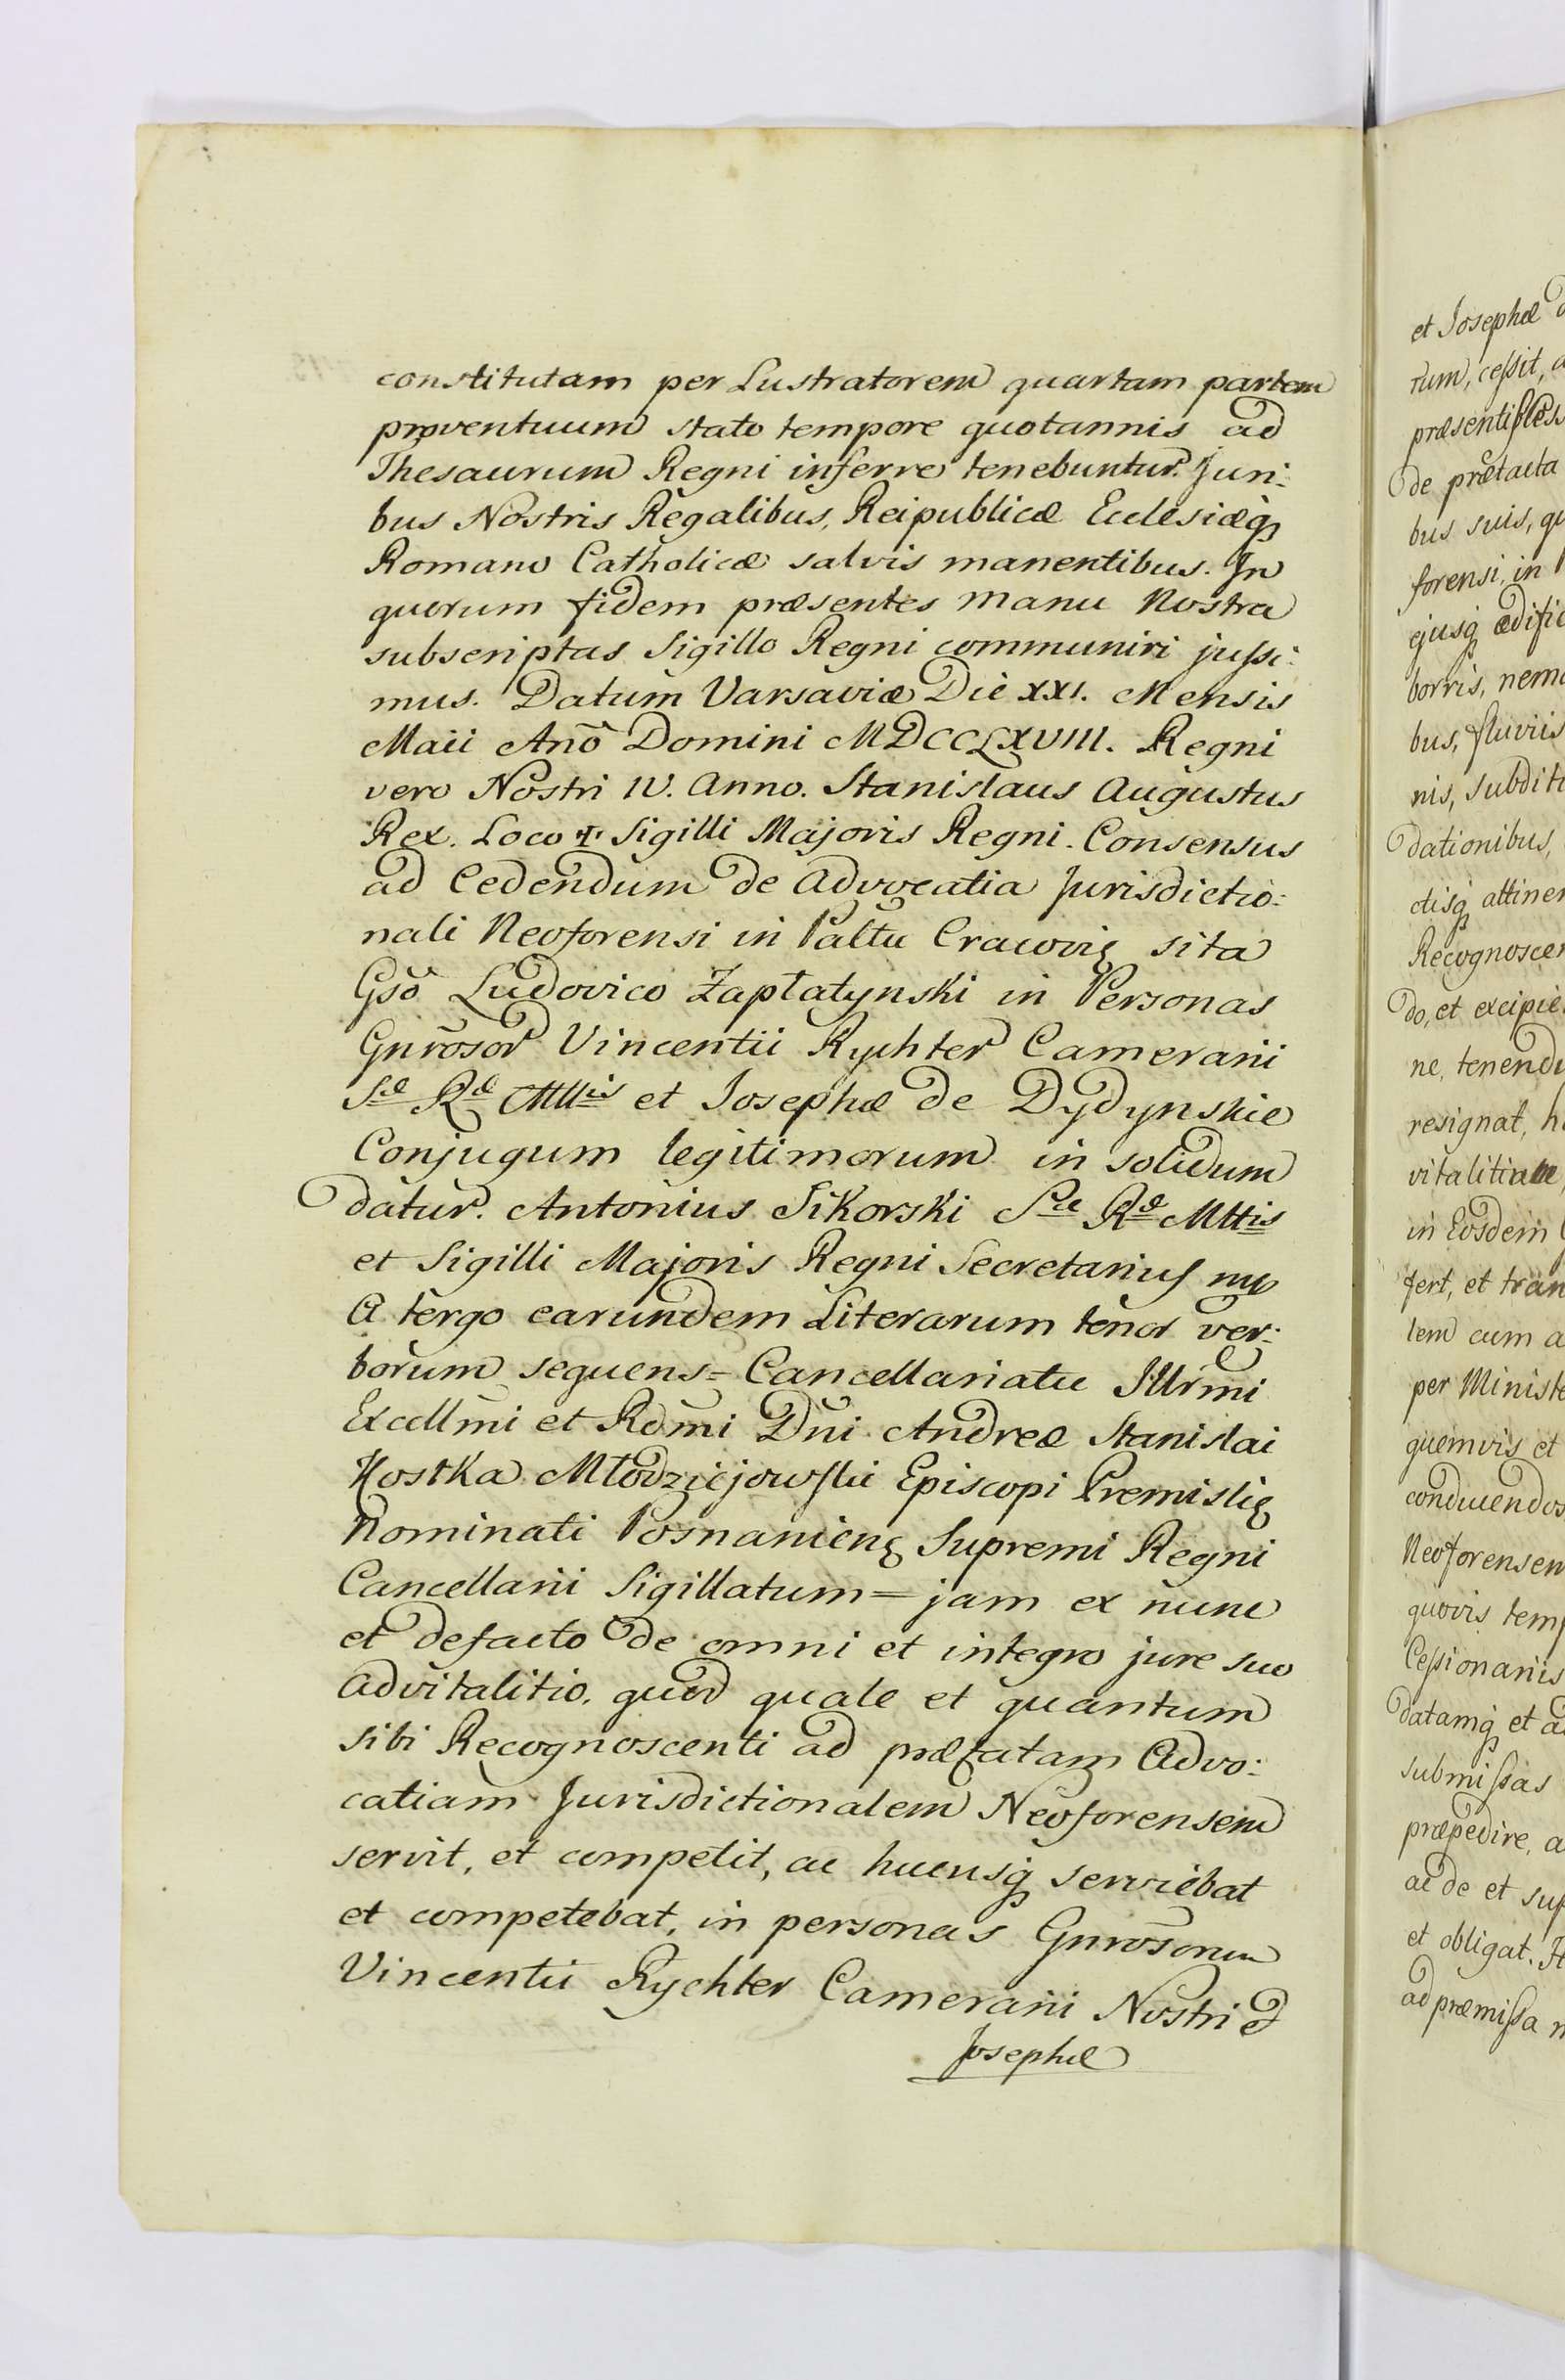 constitutam per Lustratorem quartam partem
proventuum stato tempore quotannis ad
Thesaurum Regni inferre tenebuntur. Juri:
bus Nostris Regalibus, Reipublicæ Ecclesiæq́
Romano Catholicæ salvis manentibus. In
quorum fidem præsentes manu Nostra
subscriptas Sigillo Regni communiri jussi:
mus. Datum Varsaviæ Die XXI. Mensis
Maii Anō Domini MDCCLXVIII. Regni
vero Nostri IV. Anno. Stanislaus Augustus
Rex. Loco ✠ Sigilli Majoris Regni. Consensus
ad Cedendum de Advocatia Jurisdictio:
nali Neoforensi in Paltu Cracovię sita
Gsō Ludovico Zapłatynski in Personas
Gnrōsor Vincentii Rychter Camerarii
Sæ Ræ Mttis et Josephæ de Dydynskie
Conjugum legitimorum in solidum
datur. Antonius Sikorski Sæ Ræ Mttis
et Sigilli Majoris Regni Secretarius mp
A tergo earundem Literarum tenor ver:
borum sequens = Cancellariatu Illrmi
Excellm̄i et Rdm̄i Dn̄i Andreæ Stanislai
Kostka Młodziejowski Episcopi Premislię
Nominati Posnanieng Supremi Regni
Cancellarii Sigillatum = jam ex nunc
et defacto de omni et integro jure suo
Advitalitio, quod quale et quantum
sibi Recognoscenti ad præfatam Advo:
catiam Jurisdictionalem Neoforensem
servit, et competit, ac hucusq́ serviebat
et competebat, in personas Gnrōsorum
Vincentii Rychter Camerarii Nostri &
Josephæ
et Josephæ
rum, cessit,
præsentibles
de prætacta
bus suis,
forensi, in
ejusq́ ædific
borris, nem
bus, fluviis
nis, subdit
dationibus,
ctisq́ attinen
Recognoscen
do, et excipie
ne, tenendi
resignat,
vitalitium
in Eosdem
fert, et tran
lem cum a
per Ministe
quemvis et
conducendos
Neoforensem
quovis temp
Cessionariis
datamq́ et a
submissas
præpedire, a
ac de et sup
et obligat.
ad præmissa